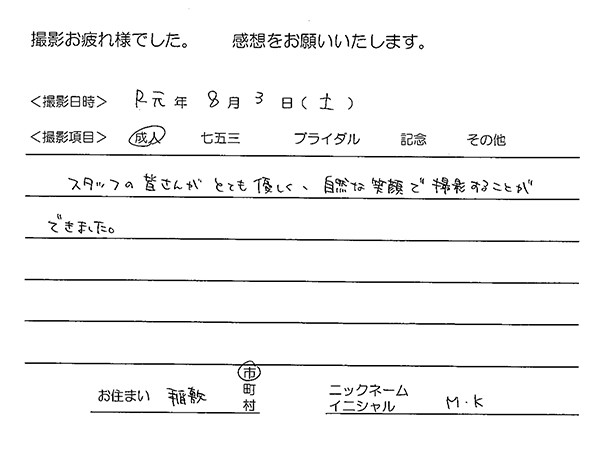 撮影お疲れ様でした。 感想をお願いいたします。
＜撮影日時＞ R元年 8月 3日(土)
＜撮影項目＞ 成人 七五三 ブライダル 記念 その他
スタッフの皆さんがとても優しく、自然な笑顔で撮影することが
できました。
お住まい 稲敷 市町村 ニックネーム イニシャル M・K